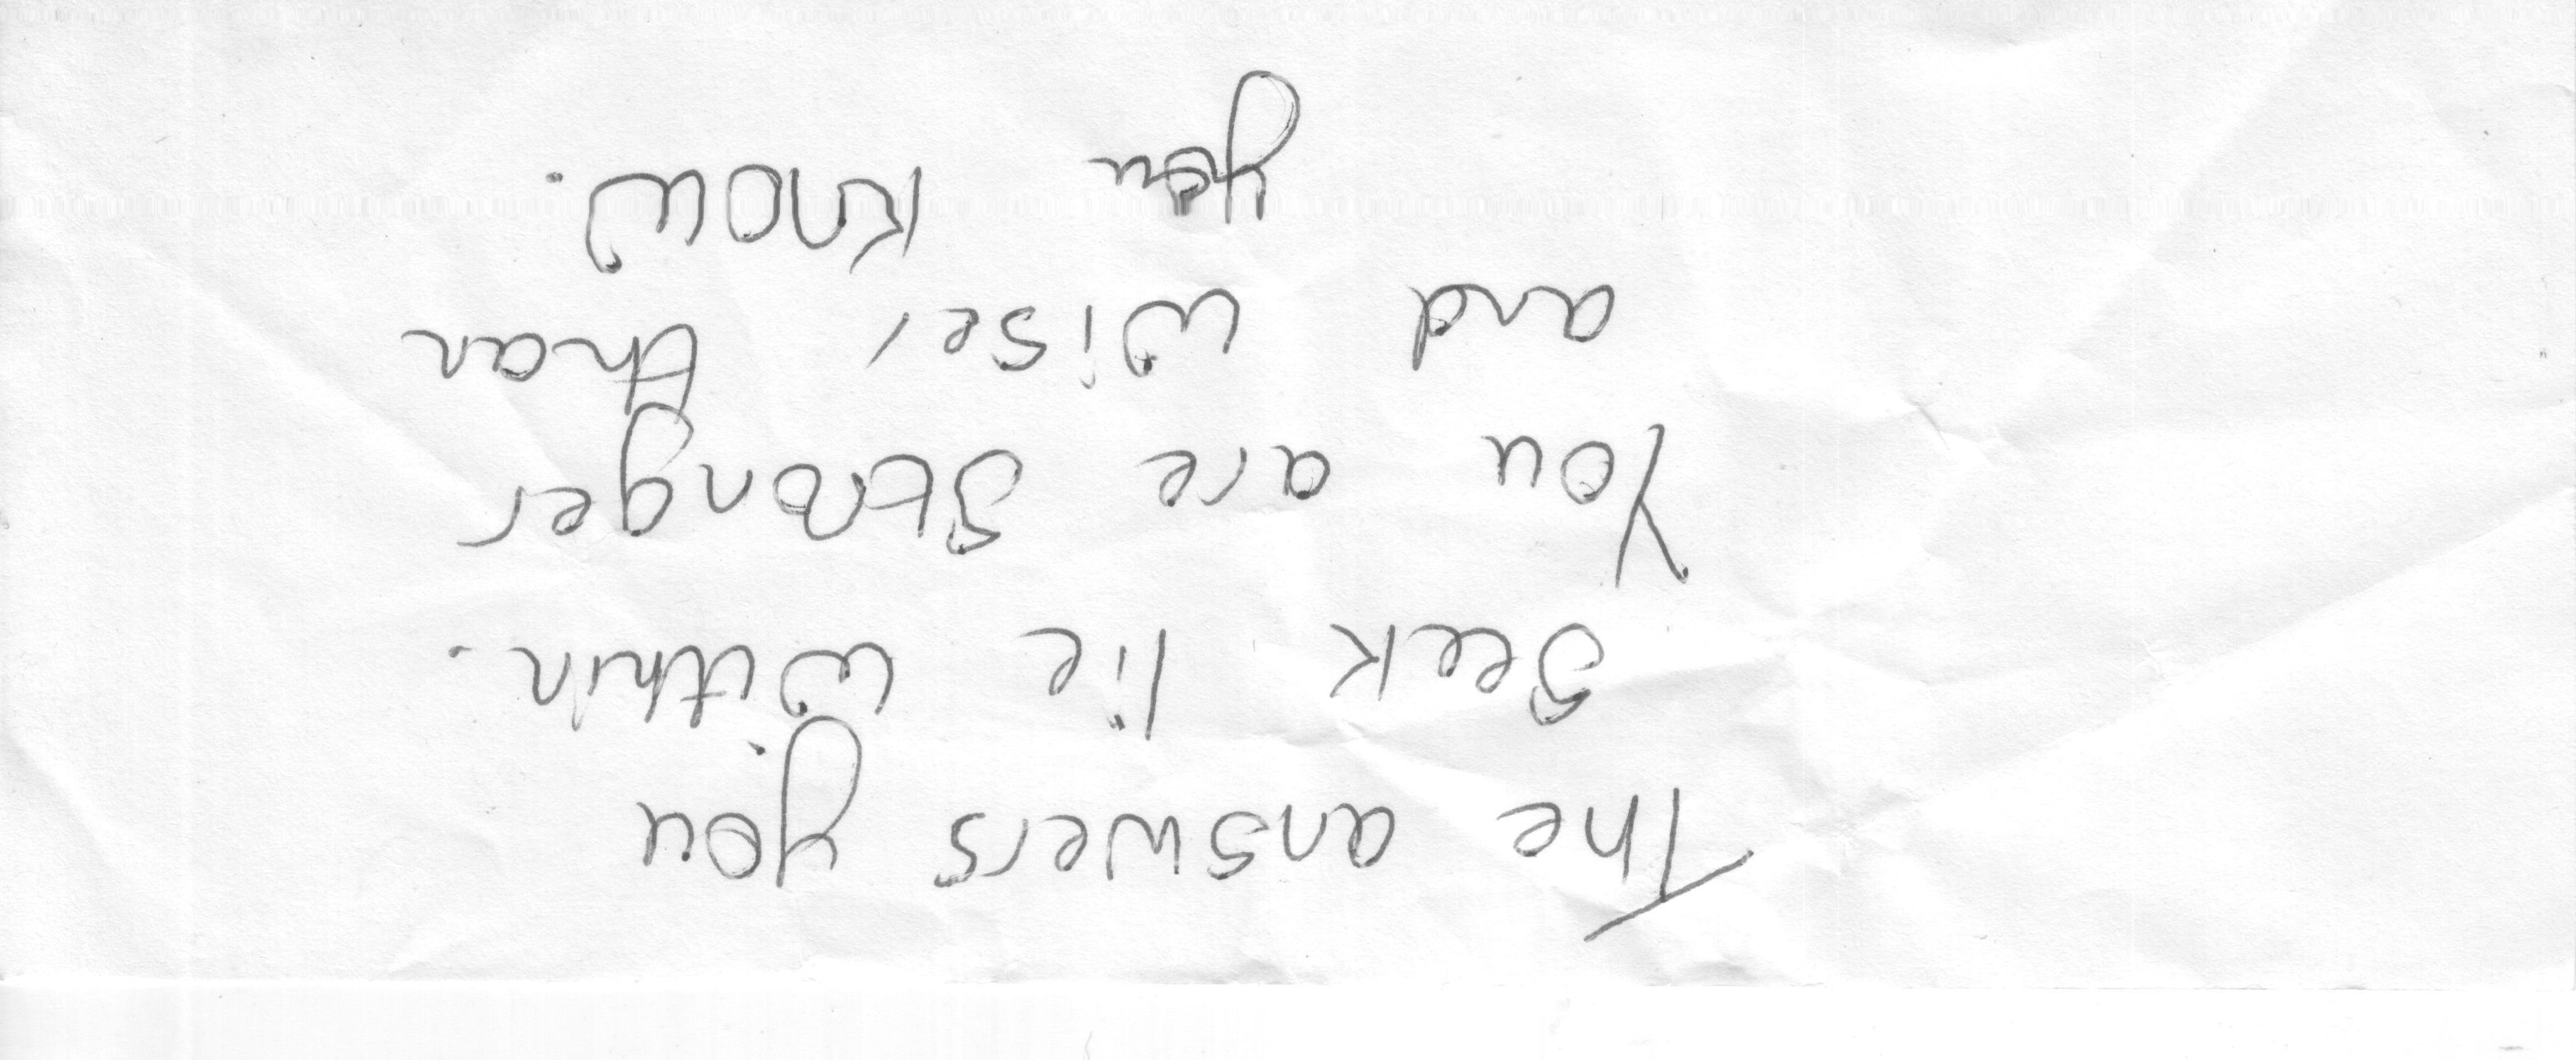 The answers you
seek lie within.
You are stronger
and wiser than
you know.